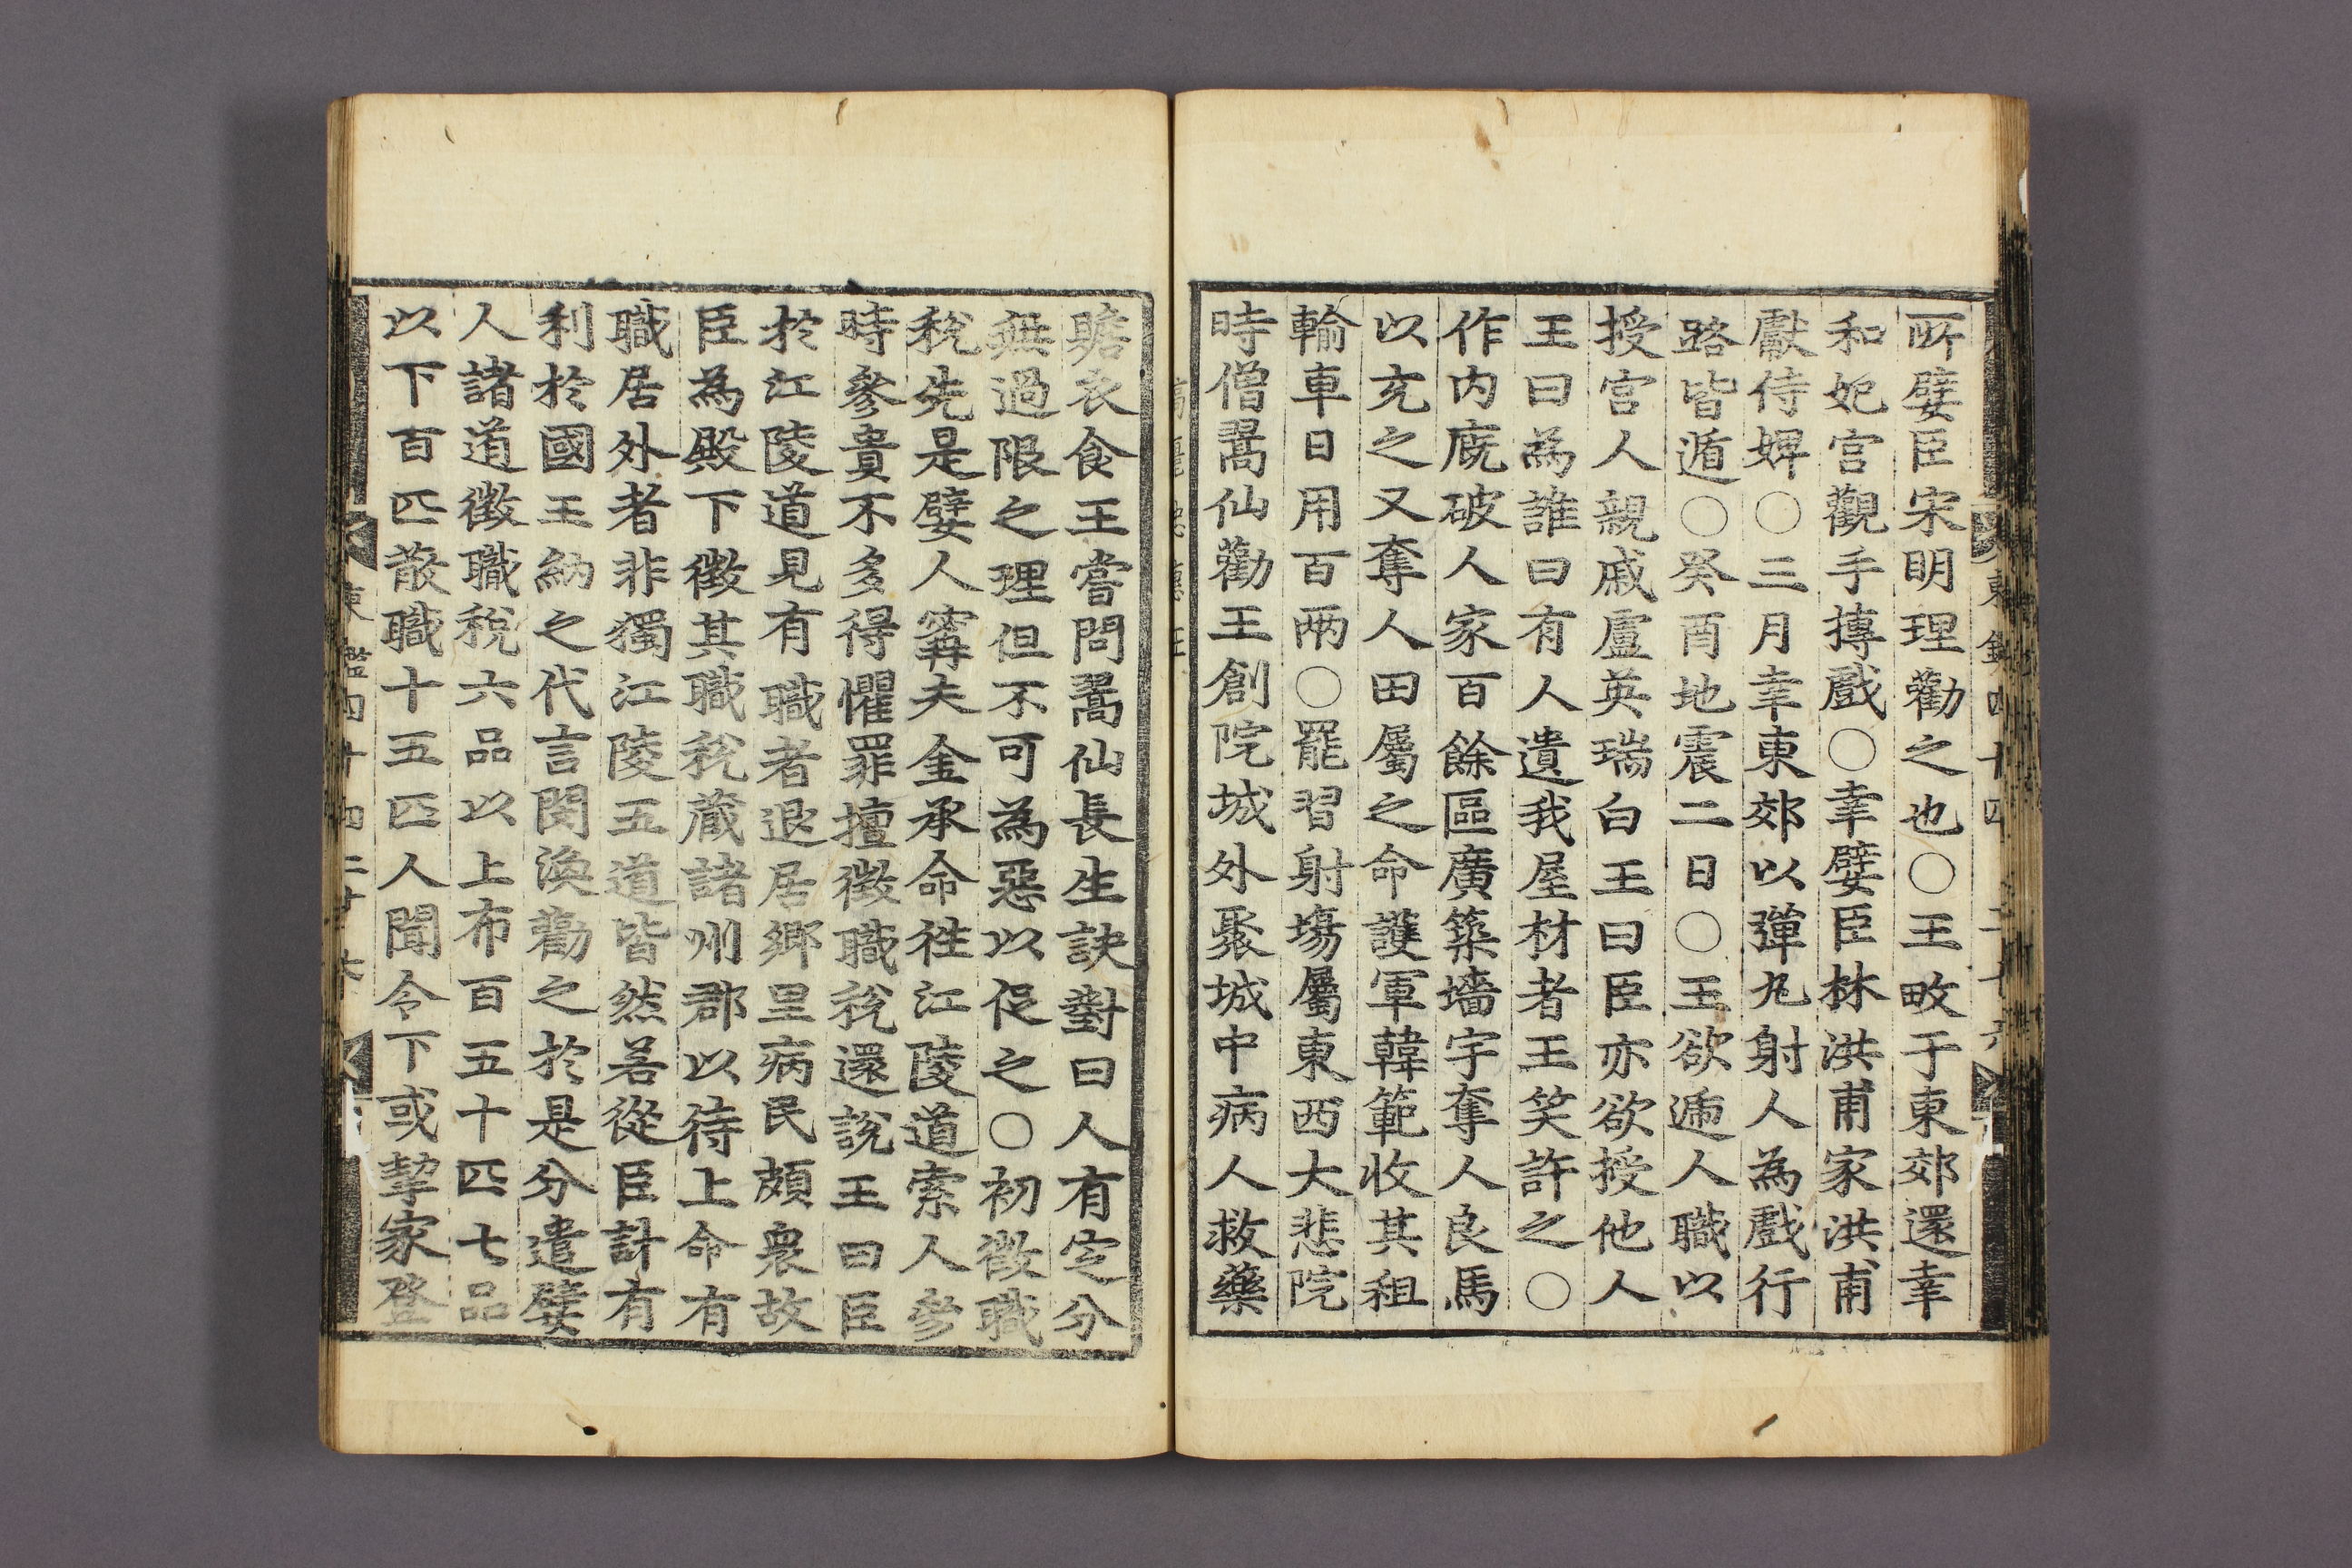 所嬖臣宋明理勸之也○王畋于東郊還幸
和妃宮觀手摶戲○幸嬖臣林洪甫家洪甫
獻侍婢○三月幸東郊以彈丸射人為戲行
路皆遁○癸酉地震二日○王欲逓人職以
授宮人親戚盧英瑞白王曰臣亦欲授他人
王曰為誰曰有人遺我屋材者王笑許之○
作内廐破人家百餘區廣築墻宇奪人良馬
以充之又奪人田屬之命護軍韓範收其租
輸車日用百兩○罷習射塲屬東西大悲院
時僧翯仙勸王創院城外聚城中病人救藥
贍衣食王嘗問翯仙長生訣對曰人有定分
無過限之理但不可為惡以促之○初徵職
稅先是嬖人窜夫金承命徃江陵道索人參
時參貴不多得懼罪擅徵職稅還說王曰臣
於江陵道見有職者退居鄉里病民頗衆故
臣為殿下徵其職稅藏諸州郡以待上命有
職居外者非獨江陵五道皆然若從臣計有
利於國王納之代言閔渙勸之於是分遣嬖
人諸道徵職稅六品以上布百五十匹七品
以下百匹散職十五匹人聞令下或挈家登
東鑑四十四